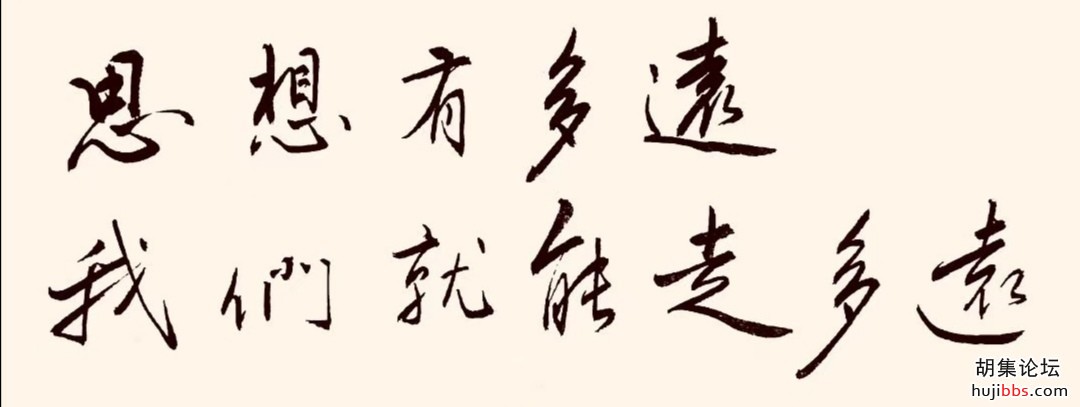 思想有多遠
我們就能走多遠
胡集论坛
hujibbs.com